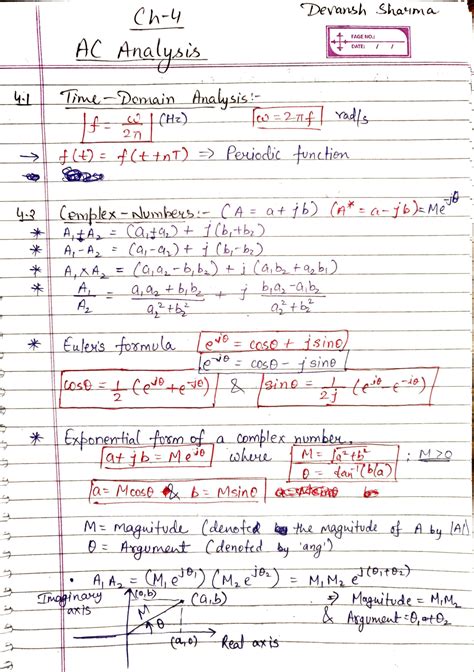 Ch-4
Devansh Sharma
AC Analysis
PAGE NO.:
DATE: / /
4.1 Time-Domain Analysis:-
f = ω/2π (Hz) ω = 2πf rad/s
→ f(t) = f(t+nT) => Periodic function
4.3 Complex-Numbers:- (A = a+jb) (A* = a-jb) = Me^-jθ
* A₁+A₂ = (a₁+a₂) + j(b₁+b₂)
* A₁-A₂ = (a₁-a₂) + j(b₁-b₂)
* A₁×A₂ = (a₁a₂-b₁b₂) + j(a₁b₂+a₂b₁)
* A₁/A₂ = (a₁a₂+b₁b₂)/(a₂²+b₂²) + j (b₁a₂-a₁b₂)/(a₂²+b₂²)
* Euler's formula e^jθ = cosθ + jsinθ
e^-jθ = cosθ - jsinθ
cosθ = 1/2 (e^jθ + e^-jθ) & sinθ = 1/2j (e^jθ - e^-jθ)
* Exponential form of a complex number.
a+jb = Me^jθ where M = √a²+b² ; M≥0
θ = tan⁻¹(b/a)
a = Mcosθ & b = Msinθ
M = magnitude (denoted the magnitude of A by |A|
θ = Argument (denoted by 'ang')
• A₁A₂ = (M₁e^jθ₁)(M₂e^jθ₂) = M₁M₂e^j(θ₁+θ₂)
Imaginary axis
(0,b)
(a,b)
M
θ
(a,0) Real axis
=> Magnitude = M₁M₂
& Argument = θ₁+θ₂